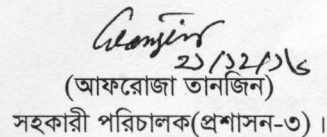 ২১/১২/১৬
(আফরোজা তানজিন)
সহকারী পরিচালক(প্রশাসন-৩) ।